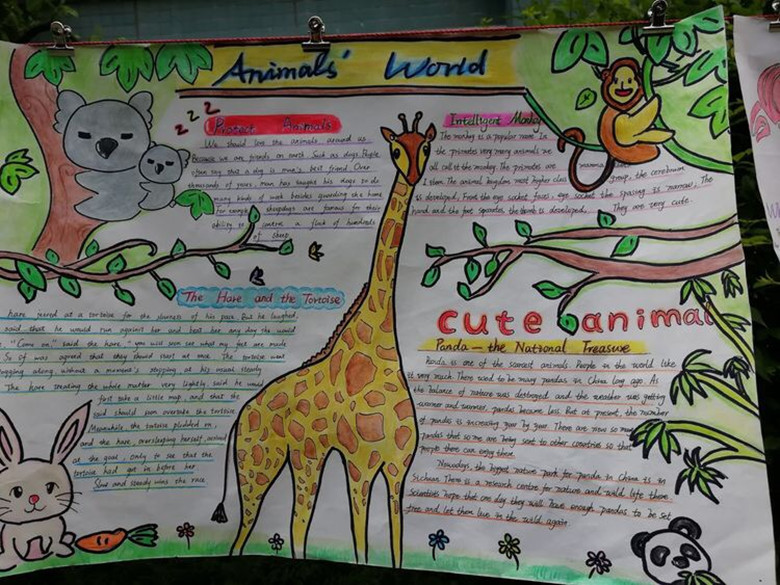 Animals' World
z z z
Protect Animals
We should love the animals around us.
Because we are friends on earth. Such as dogs. People
often say that a dog is man's best friend. Over
thousands of years, man has taught his dogs to do
many kinds of work besides guarding the home
for example sheepdogs are famous for their
ability to control a flock of hundreds
of sheep.
Intelligent Monkey
The monkey is a popular name. In
the primates very many animals we
all call it the monkey. The primates are mamma
I stem. The animal kingdom most higher class group, the cerebrum
is developed; From the eye socket faces, eye socket the spacing is narrow; The
hand and the foot separates, the thumb is developed, They are very cute.
The Hare and the Tortoise
hare jeered at a tortoise for the slowness of his pace. But he laughed,
said that he would run against her and beat her any day she would
"Come on," said the hare "you will soon see what my feet are made
So it was agreed that they should start at once. The tortoise went
jogging along, without a moment's stopping at his usual steady
The hare treating the whole matter very lightly, said he would
first take a little nap, and that she
said should soon overtake the tortoise
Meanwhile, the tortoise plodded on,
and the hare, oversleeping herself, arrived
at the goal, only to see that the
tortoise had got in before her
Slow and steady wins the race
cute animal
Panda — the National Treasure
Panda is one of the scarcest animals. People in the world like
it very much. There used to be many pandas in China long ago. As
the balance of nature was destroyed and the weather was getting
warmer and warmer, pandas became less. But at present, the number
of pandas is increasing year by year. There are now so many
pandas that some are being sent to other countries so that
people there can enjoy them.
Nowadays, the biggest nature park for panda in China is in
Sichuan. There is a research centre for nature and wild life there.
Scientists hope that one day they will have enough pandas to be set
free and let them live in the wild again.